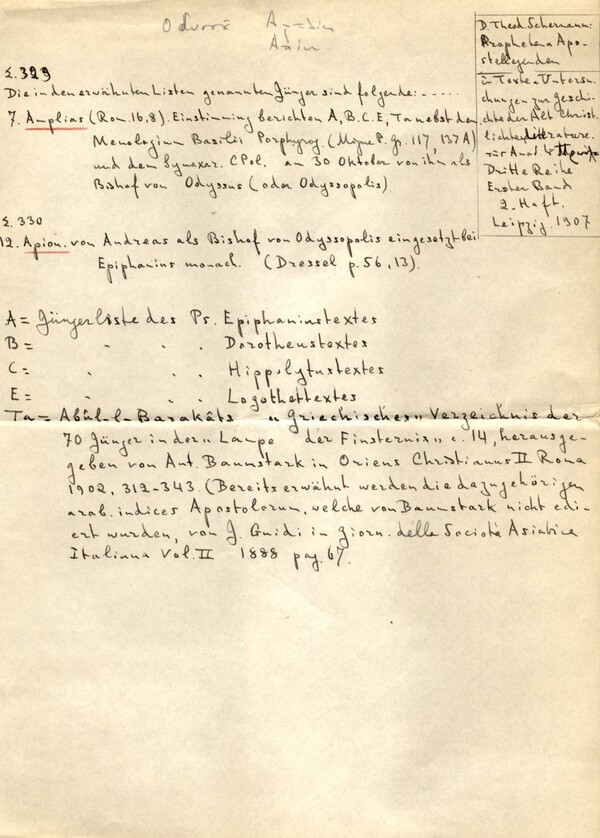 D. Theod. Schermann:
Propheten Apo-
stellegenden
in Texte u. Untersu-
chungen zur Geschi-
chte der Alt Christ.
lichen Litterature.
Dritte Reihe
Erster Band
2. Haft.
Leipzig. 1907
Σ. 329
Die in den erwähnten Listen genannten Jünger sind folgende: - - - - -
7. Amplias (Rom. 16,8). Einstimmig berichten A, B, C, E, Ta nebst dem
Menologium Basilii Porphyrog. (Migne P. gr. 117, 137 A)
und dem Synaxar. CPol. am 30 Oktober von ihm als
Bishof von Odyssus (oder Odyssopolis).
Σ. 330
12. Apion. von Andreas als Bishof von Odyssopolis eingesetzt bei
Epiphanius monach. (Dressel p. 56, 13).
A = Jüngerliste des Ps. Epiphaniustextes
B = " . . Dorotheustextes
C = " . . Hippolytustextes
E = " . . Logothettextes
Ta = Abûl-l-Barakâts „Griechisches„ Verzeichnis der
70 Jünger in der „Lampe der Finsternix„ c. 14, herausge-
geben von Ant. Baumstark in Oriens Christianus II Roma
1902, 312-343. (Bereits erwähnt werden die dazugehörigen
arab. indices Apostolorum, welche von Baumstark nicht edi-
ert wurden, von J. Guidi in Giorn. della Societa Asiatica
Italiana Vol. II 1888 pag. 67.